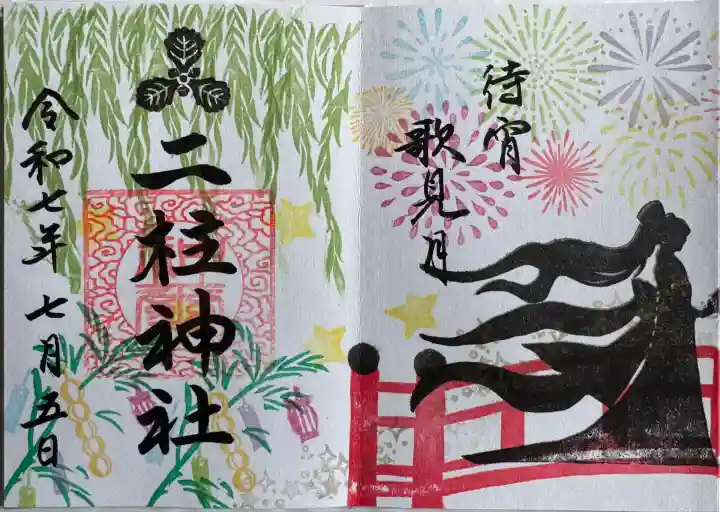 待宵
歌見月
二柱神社
令和七年七月五日